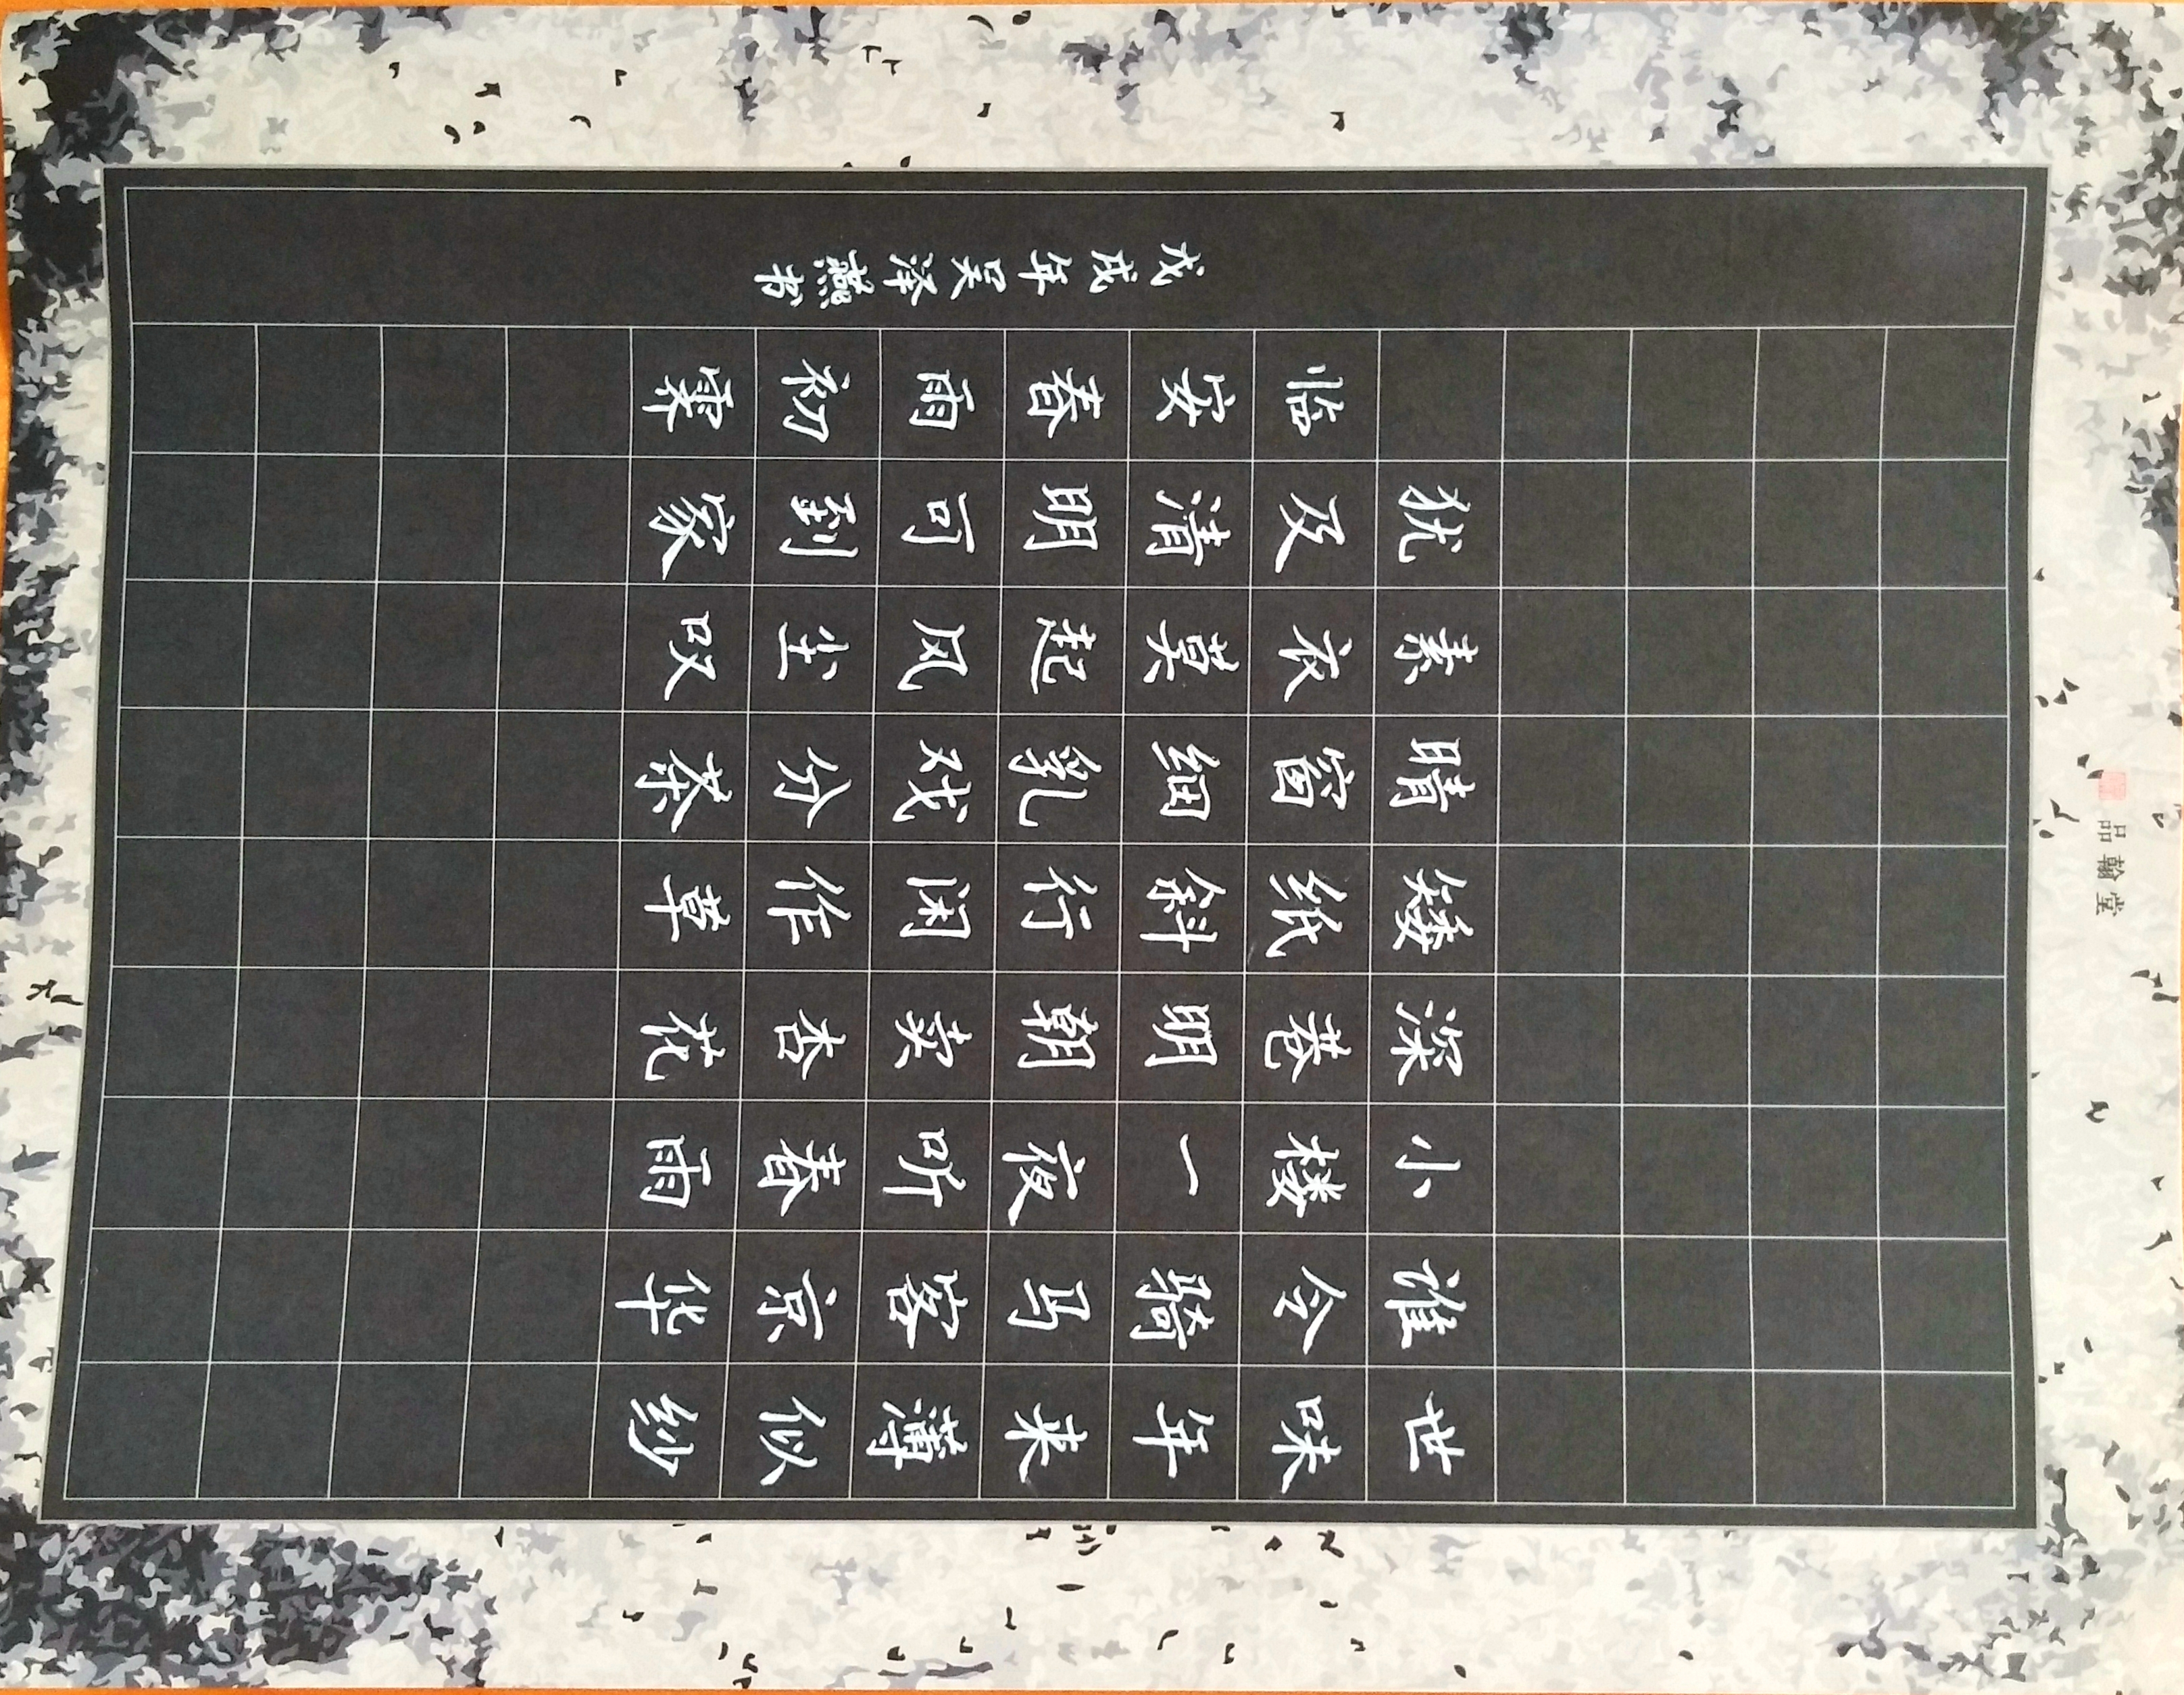 世味年来薄似纱
谁令骑马客京华
小楼一夜听春雨
深巷明朝卖杏花
矮纸斜行闲作草
晴窗细乳戏分茶
素衣莫起风尘叹
犹及清明可到家
临安春雨初霁
戊戌年吴泽燕书
品翰堂